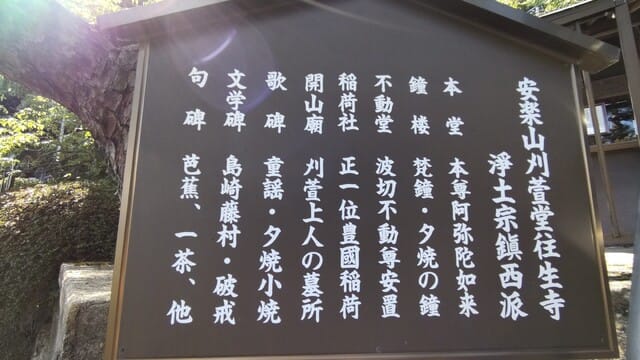 安楽山刈萱堂往生寺
淨土宗鎮西派
本堂 本尊阿弥陀如来
鐘楼 梵鐘・夕焼の鐘
不動堂 波切不動尊安置
稲荷社 正一位豊國稲荷
開山廟 刈萱上人の墓所
歌碑 童謡・夕焼小焼
文学碑 島崎藤村・破戒
句碑 芭蕉、一茶、他